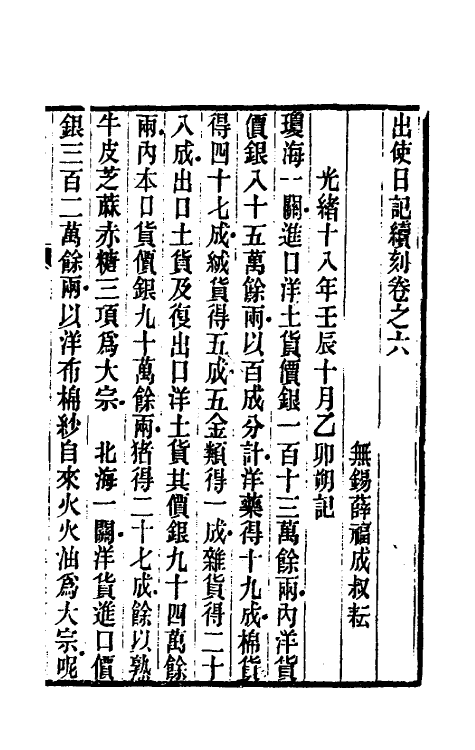 出使日記續刻卷之六
無錫薛福成叔耘
光緒十八年壬辰十月乙卯朔記
瓊海一關進口洋土貨價銀一百十三萬餘兩內洋貨
價銀八十五萬餘兩以百成分計洋藥得十九成棉貨
得四十七成絨貨得五成五金類得一成雜貨得二十
八成出口土貨及復出口洋土貨其價銀九十四萬餘
兩內本口貨價銀九十萬餘兩猪得二十七成餘以熟
牛皮芝蔴赤糖三項爲大宗　北海一關洋貨進口價
銀三百二萬餘兩以洋布棉紗自來火火油爲大宗呢